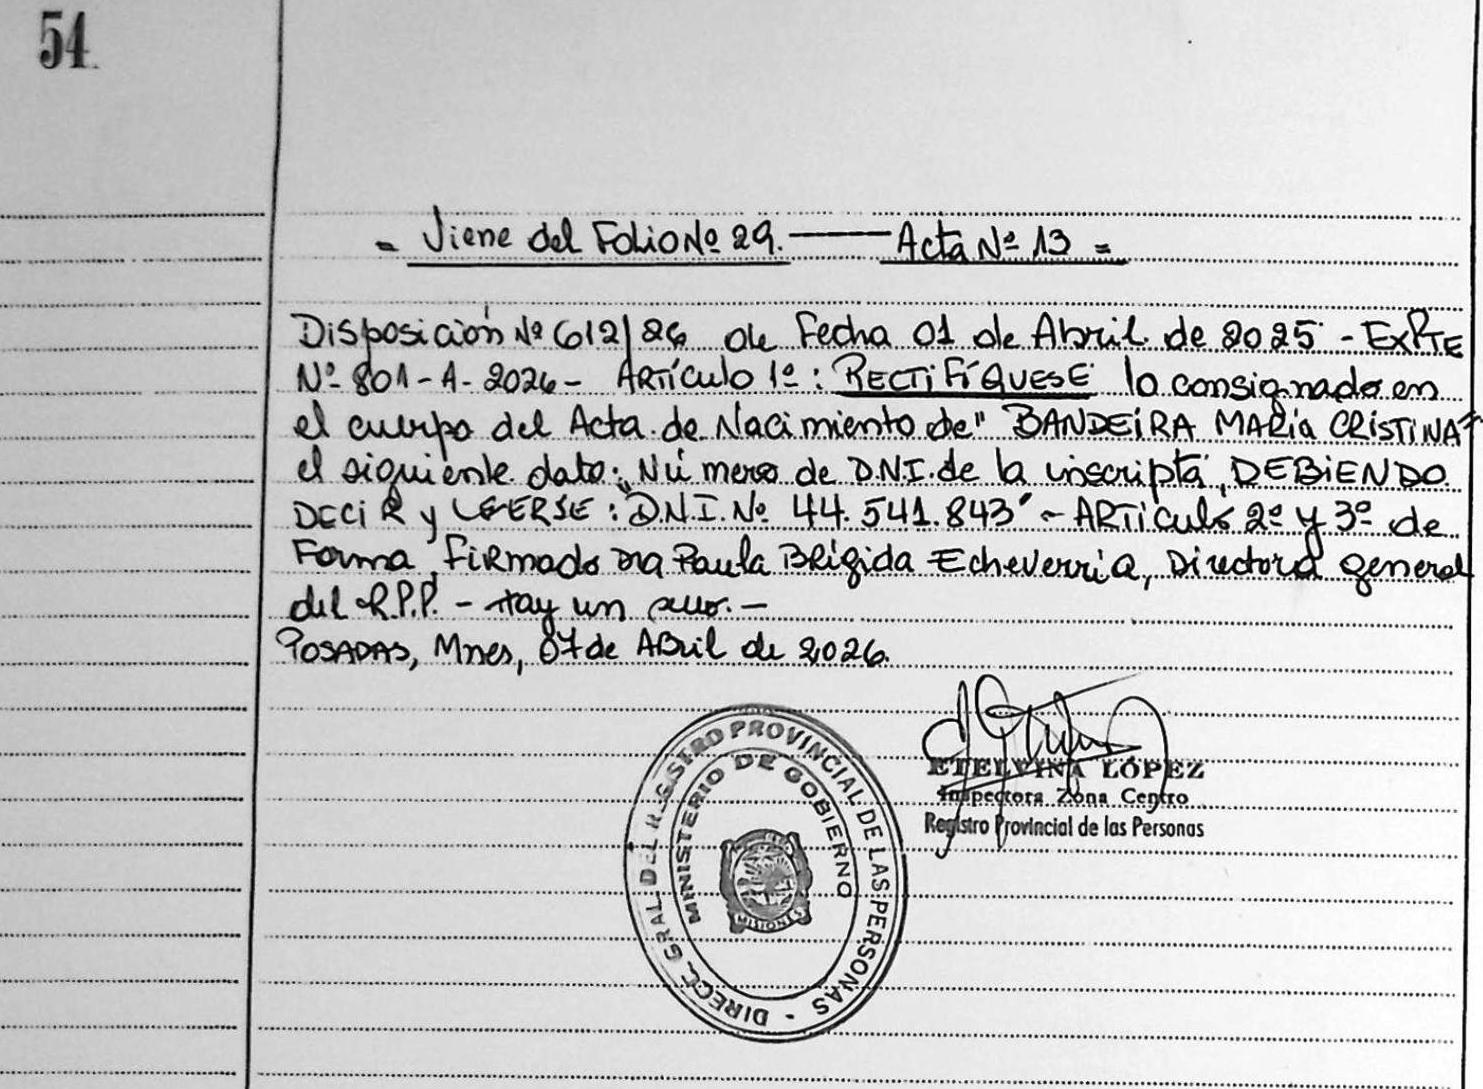 54
= Viene del Folio Nº 29. ——— Acta Nº 13 =
Disposición Nº 612/26 de Fecha 01 de Abril de 2025 - EXPTE
Nº 801-A-2026 - ARTÍCULO 1º: RECTIFÍQUESE lo consignado en
el cuerpo del Acta de Nacimiento de "BANDEIRA MARIA CRISTINA"
el siguiente dato: Número de D.N.I. de la inscripta, DEBIENDO
DECIR y LEERSE: "D.N.I. Nº 44.541.843" - ARTículo 2º y 3º de
Forma, Firmado Dra Paula Brígida Echeverria, Directora general
del R.P.P. - Hay un sello. -
POSADAS, Mnes, 07 de ABril de 2026.
DIRECC. GRAL. DEL REGISTRO PROVINCIAL DE LAS PERSONAS -
MINISTERIO DE GOBIERNO
MISIONES
ETELVINA LÓPEZ
Inspectora Zona Centro
Registro Provincial de las Personas